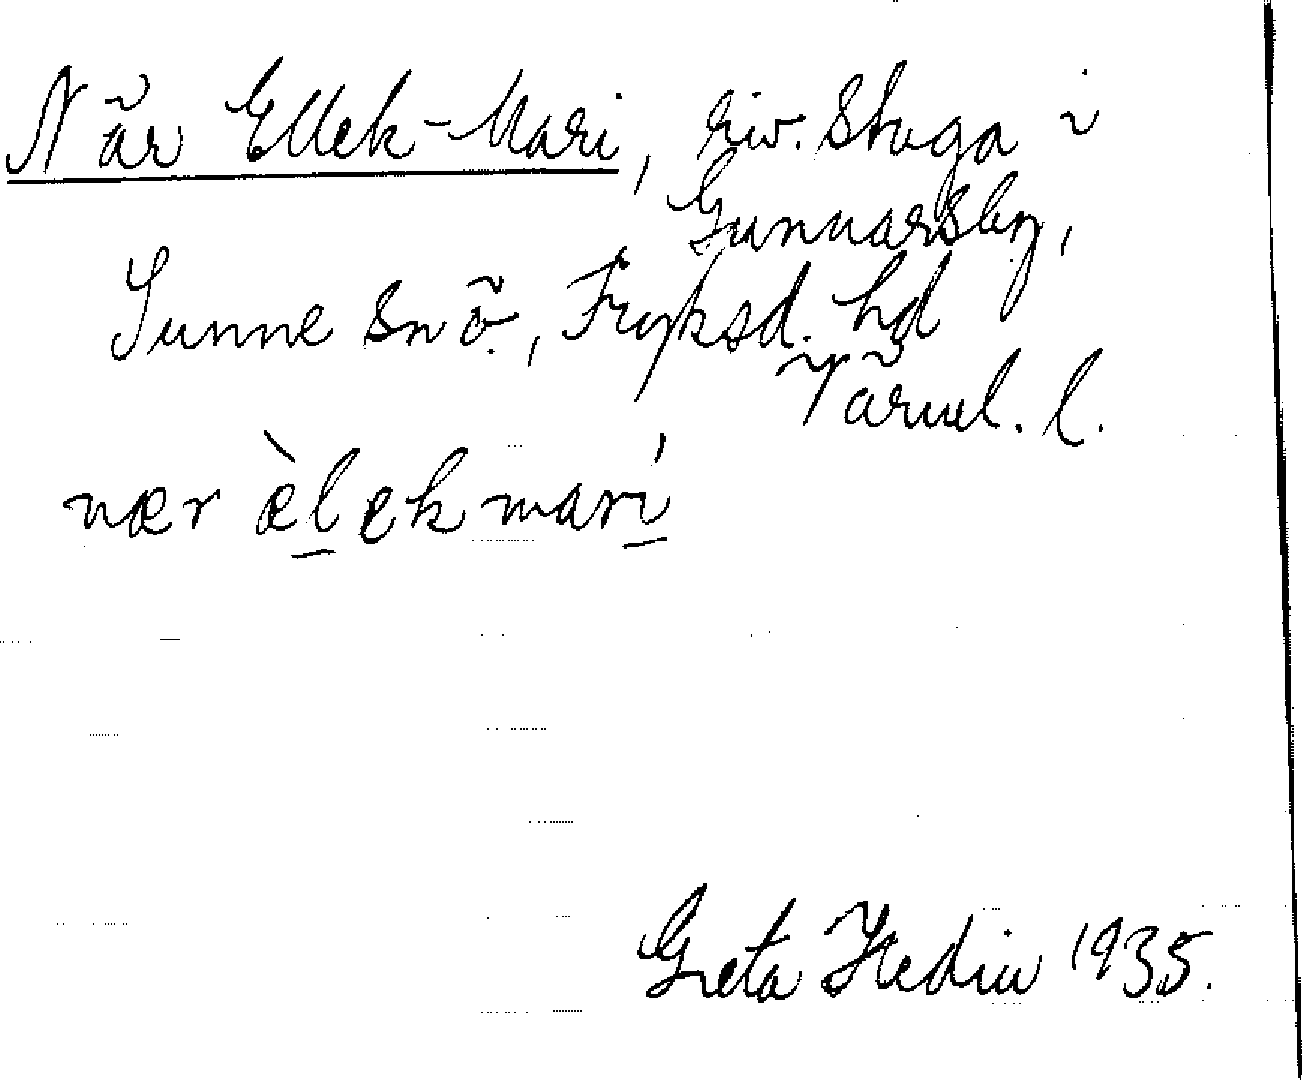 När Ellek-Mari, riv. stuga i
Gunnarsby,
Sunne snö., Fryksd. hd
Värml. l.
nær æ̀lekmarí
Greta Hedin 1935.